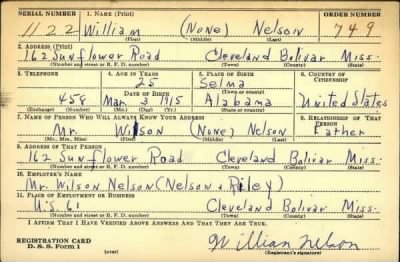 SERIAL NUMBER 1. NAME (Print) ORDER NUMBER
1122 William (None) Nelson 749
(First) (Middle) (Last)
2. ADDRESS (Print)
162 Sunflower Road Cleveland Bolivar Miss.
(Number and street or R. F. D. number) (Town) (County) (State)
3. TELEPHONE 4. AGE IN YEARS 5. PLACE OF BIRTH 6. COUNTRY OF CITIZENSHIP
25 Selma
DATE OF BIRTH (Town or county)
458 Mar. 3 1915 Alabama United States
(Exchange) (Number) (Mo.) (Day) (Yr.) (State or country)
7. NAME OF PERSON WHO WILL ALWAYS KNOW YOUR ADDRESS 8. RELATIONSHIP OF THAT PERSON
Mr. Wilson (None) Nelson Father
(Mr., Mrs., Miss) (First) (Middle) (Last)
9. ADDRESS OF THAT PERSON
162 Sunflower Road Cleveland Bolivar Miss.
(Number and street or R. F. D. number) (Town) (County) (State)
10. EMPLOYER'S NAME
Mr. Wilson Nelson (Nelson & Riley)
11. PLACE OF EMPLOYMENT OR BUSINESS
U.S. 61 Cleveland Bolivar Miss.
(Number and street or R. F. D. number) (Town) (County) (State)
I AFFIRM THAT I HAVE VERIFIED ABOVE ANSWERS AND THAT THEY ARE TRUE.
REGISTRATION CARD William Nelson
D. S. S. Form 1 (over) (Registrant's signature)